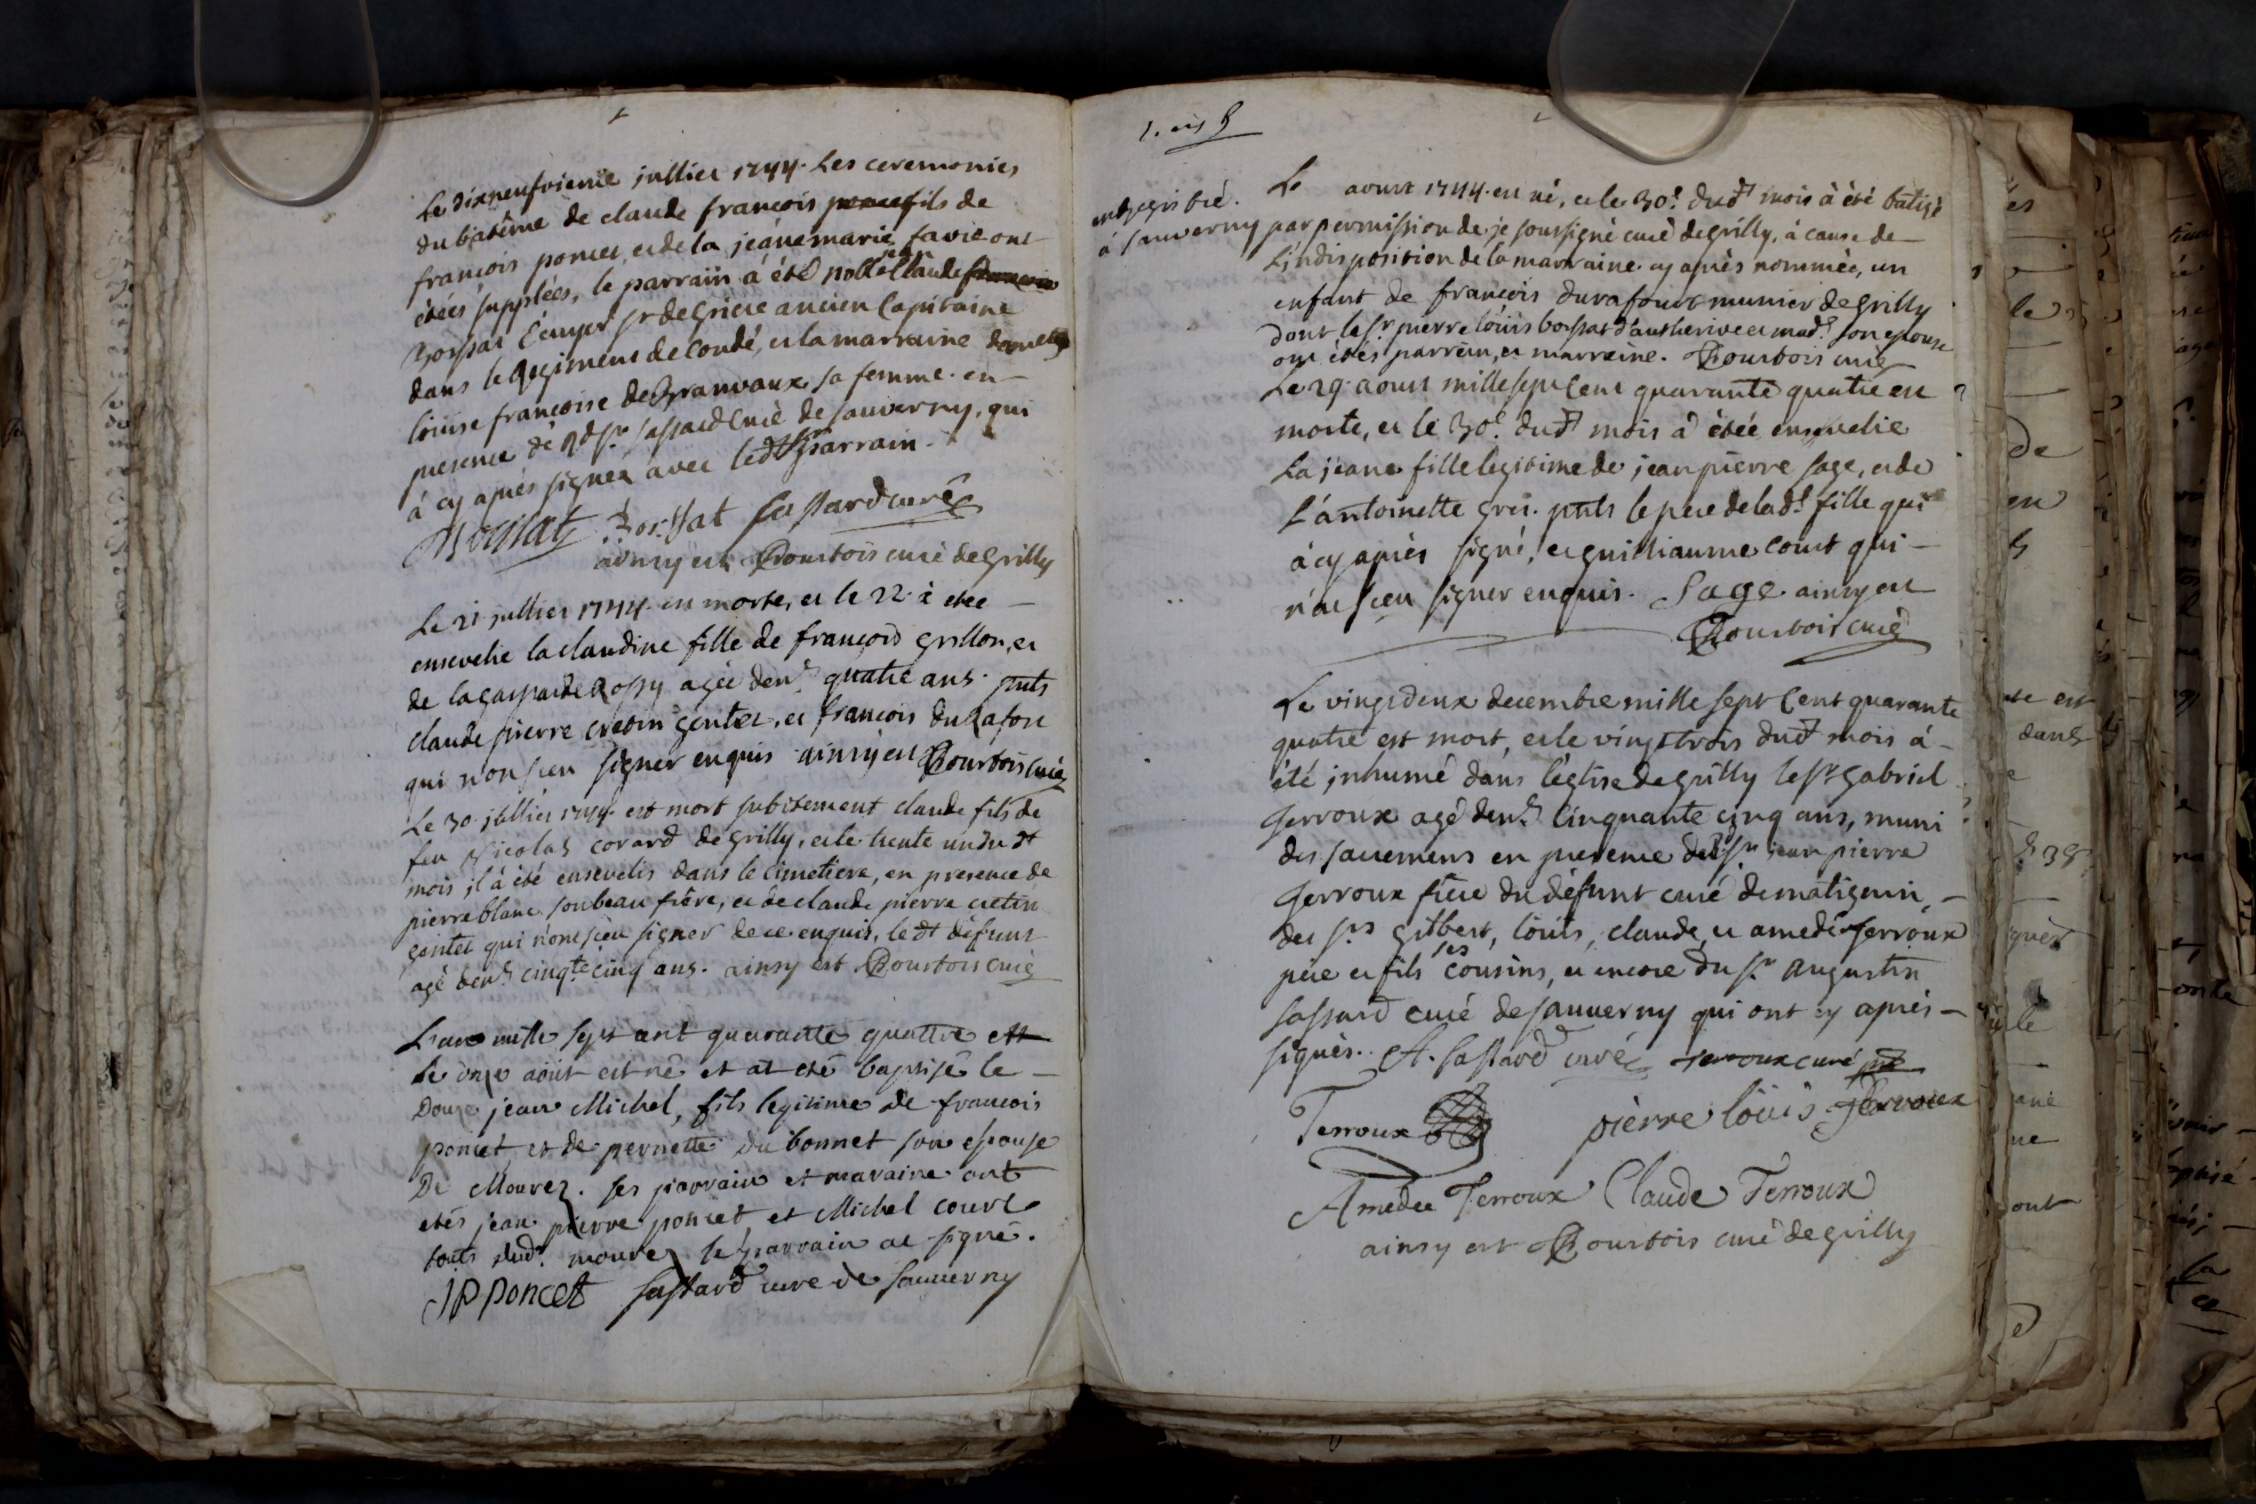 Le dixneufvieme jullier 1744. Les ceremonies
du batême de claude françois poncet fils de
françois poncet, et de la jeanemarie favre ont
étées supplées, le parrain à été noble Claude
Bossat Ecuyer sr de Griere ancien Capitaine
dans le Regiment de Condé, et la marraine
loüise francoise de Granvaux sa femme. en
presence de Rd sr sassard Curé de sauverny, qui
à cy après signez avec ledt sr parrain.
Bossat Bossat sassard curé
ainsy est Bourbois curé de Grilly
Le 21 jullier 1744. est morte, et le 22. à etee
ensevelie la claudine fille de françois Grillon, et
de la gasparde Rossy agée denv. quatre ans. pnts
claude pierre cretin gentet, et francois du Rafort
qui n'ont sceu signer enquis. ainsy est Bourbois curé
Le 30. jullier 1744. est mort subitement claude fils de
feu Nicolas corard de Grilly, et le trente un du dt
mois il à été ensevelis dans le Cimetiere, en presence de
pierre blanc son beau frère, et de claude pierre cretin
gentet qui n'ont sceu signer de ce enquis, le dt défunt
agé denv. cinqte cinq ans. ainsy est Bourbois curé
L'an mille sept cent quarante quattre
Le onze aôut est né et at eté baptisé le
Douze jean Michel, fils legitime de francois
poncet et de pernette du bonnet son epouse
De Mourez. ses parrain et maraine ont
etés jean pierre poncet et Michel court
touts dud. mourez le parrain at signé.
JP poncet sassard curé de sauverny
enregistré.
à sauverny
Le aoust 1744. est né, et le 30e. dudt mois à été batisé
par permission de je soussigné curé de grilly, à cause de
L'indisposition de la marraine cy après nommée, un
enfant de françois durafour munier de grilly
dont le sr pierre loüis bossat d'autherive et mad. son epouse
ont étés parrein, et marreine. Bourbois curé
Le 29. aoust mille sept Cent quarante quatre est
morte, et le 30e. dudt mois à étée ensevelie
La jeane fille legitime de jean pierre sage, et de
L'antoinette gres. pnts le pere de lad. fille qui
à cy après signé, et guilliaume court qui
n'at sceu signer enquis. Sage. ainsy est
Bourbois curé
Le vingt deux decembre mille sept Cent quarante
quatre est mort, et le vingt trois dudt mois à
été inhumé dans l'église de grilly le sr Gabriel
Terroux agé denv. Cinquante cinq ans, muni
des sacremens en presence de sr jean pierre
Terroux frère du défunt curé de matignin,
des srs gilbert, loüis, claude, et amedée Terroux
père et fils ses cousins, et encore du sr augustin
sassard curé de sauverny qui ont cy après
signés. A. sassard curé Terroux curé
Terroux pierre loüis Terroux
Amedee Terroux Claude Terroux
ainsy est Bourbois curé de grilly